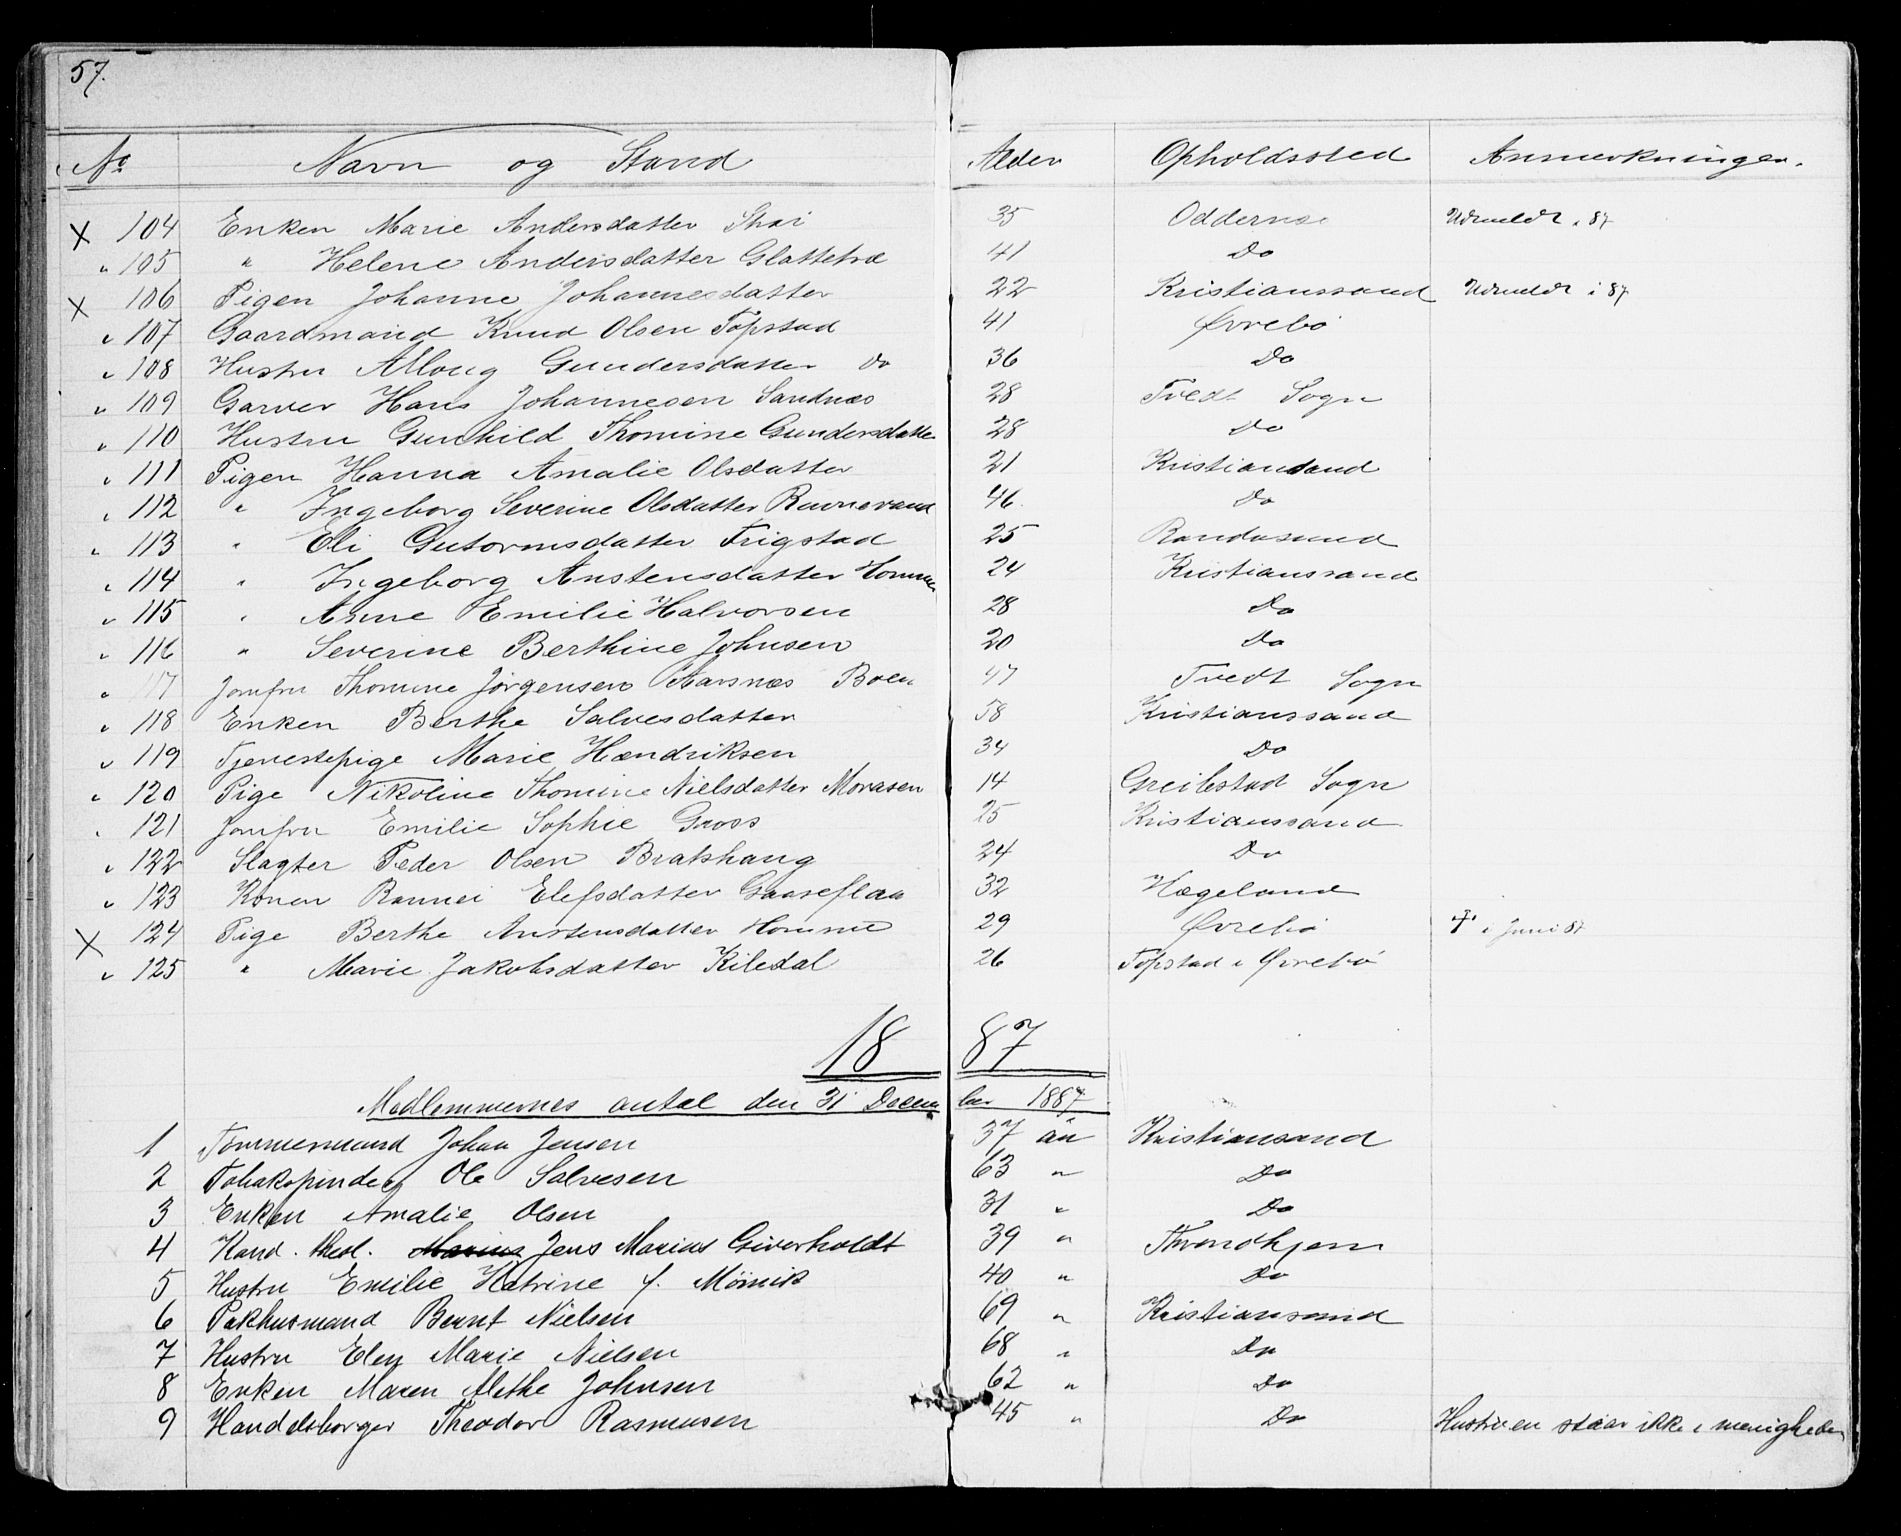 57.
No Navn og Stand Alder Opholdssted Anmerkninger.
X 104 Enken Marie Andersdatter Strai 35 Oddernæs Udmeldt i 87
" 105 " Helene Andersdatter Glattetræ 41 Do
X 106 Pigen Johanne Johannesdatter 22 Kristianssand Udmeldt i 87
" 107 Gaardmand Knud Olsen Topstad 41 Øvrebö
" 108 Hustru Allaug Gundersdatter Do 36 Do
" 109 Garver Hans Johannesen Sandnæs 28 Tvedt Sogn
" 110 Hustru Gunhild Thomine Gundersdatter 28 Do
" 111 Pigen Hanna Amalie Olsdatter 21 Kristiansand
" 112 " Ingeborg Severine Olsdatter Ravnevand 46. Do
" 113 " Eli Gutormsdatter Frigstad 25 Randøsund
" 114 " Ingeborg Anstensdatter Homme 24 Kristianssand
" 115 " Anne Emilie Halvorsen 28 Do
" 116 " Severine Berthine Johnsen 20 Do
" 117 Jomfru Thomine Jørgensen Aarsnæs Boen 47 Tvedt Sogn
" 118 Enken Berthe Salvesdatter 58 Kristianssand
" 119 Tjenestepige Marie Hendriksen 34 Do
" 120 Pige Nikoline Thomine Nielsdatter Moråsen 14 Greibstad Sogn
" 121 Jomfru Emilie Sophie Gross 25 Kristianssand
" 122 Slagter Peder Olsen Bratshaug 24 Do
" 123 Konen Rannei Elefsdatter Gaaseflaa 32 Hægeland
X 124 Pige Berthe Anstensdatter Homme 29 Øvrebö † i Juni 87
" 125 " Marie Jakobsdatter Kiledal 26 Topstad i Øvrebö
18 87
Medlemmernes antal den 31 Decem ber 1887
1 Tømmermand Johan Jensen 37 år Kristiansand
2 Tobakspinder Ole Salvesen 63 " Do
3 Enken Amalie Olsen 31 " Do
4 Kand. theol. Marius Jens Marius Giverholdt 39 " Throndhjem
5 Hustru Emilie Katrine f. Mönnik 40 " Do
6 Pakhusmand Bernt Nielsen 69 " Kristiansand
7 Hustru Elen Marie Nielsen 68 " Do
8 Enken Maren Alethe Johnsen 62 " Do
9 Handelsborger Theodor Rasmusen 45 " Do Hustruen staar ikke i menigheden